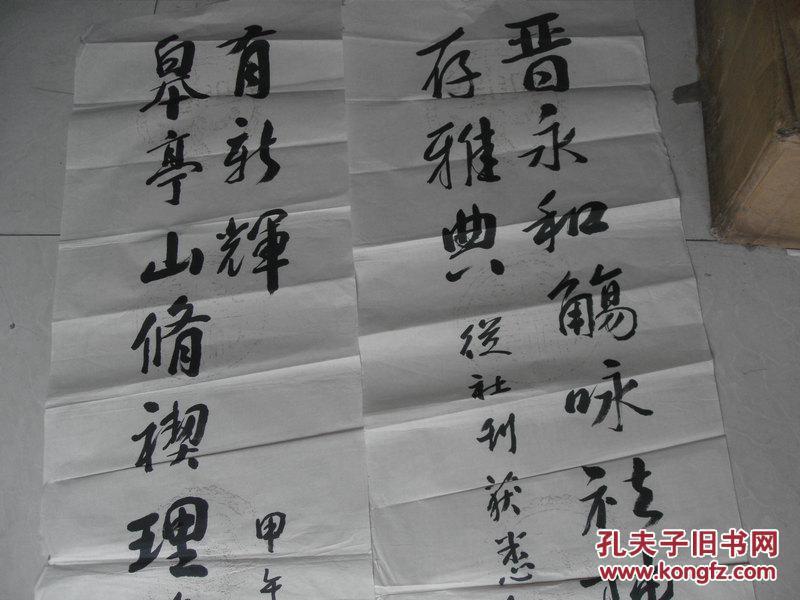 晋永和觴咏社
存雅典從社刊获悉
有新輝
皋亭山脩禊理
甲午
孔夫子旧书网
www.kongfz.com